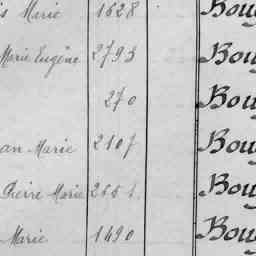 s Marie 1628 Bou
Marie Eugène 2793 Bou
270 Bou
an-Marie 2107 Bou
Pierre Marie Bou
Marie 1490 Bou